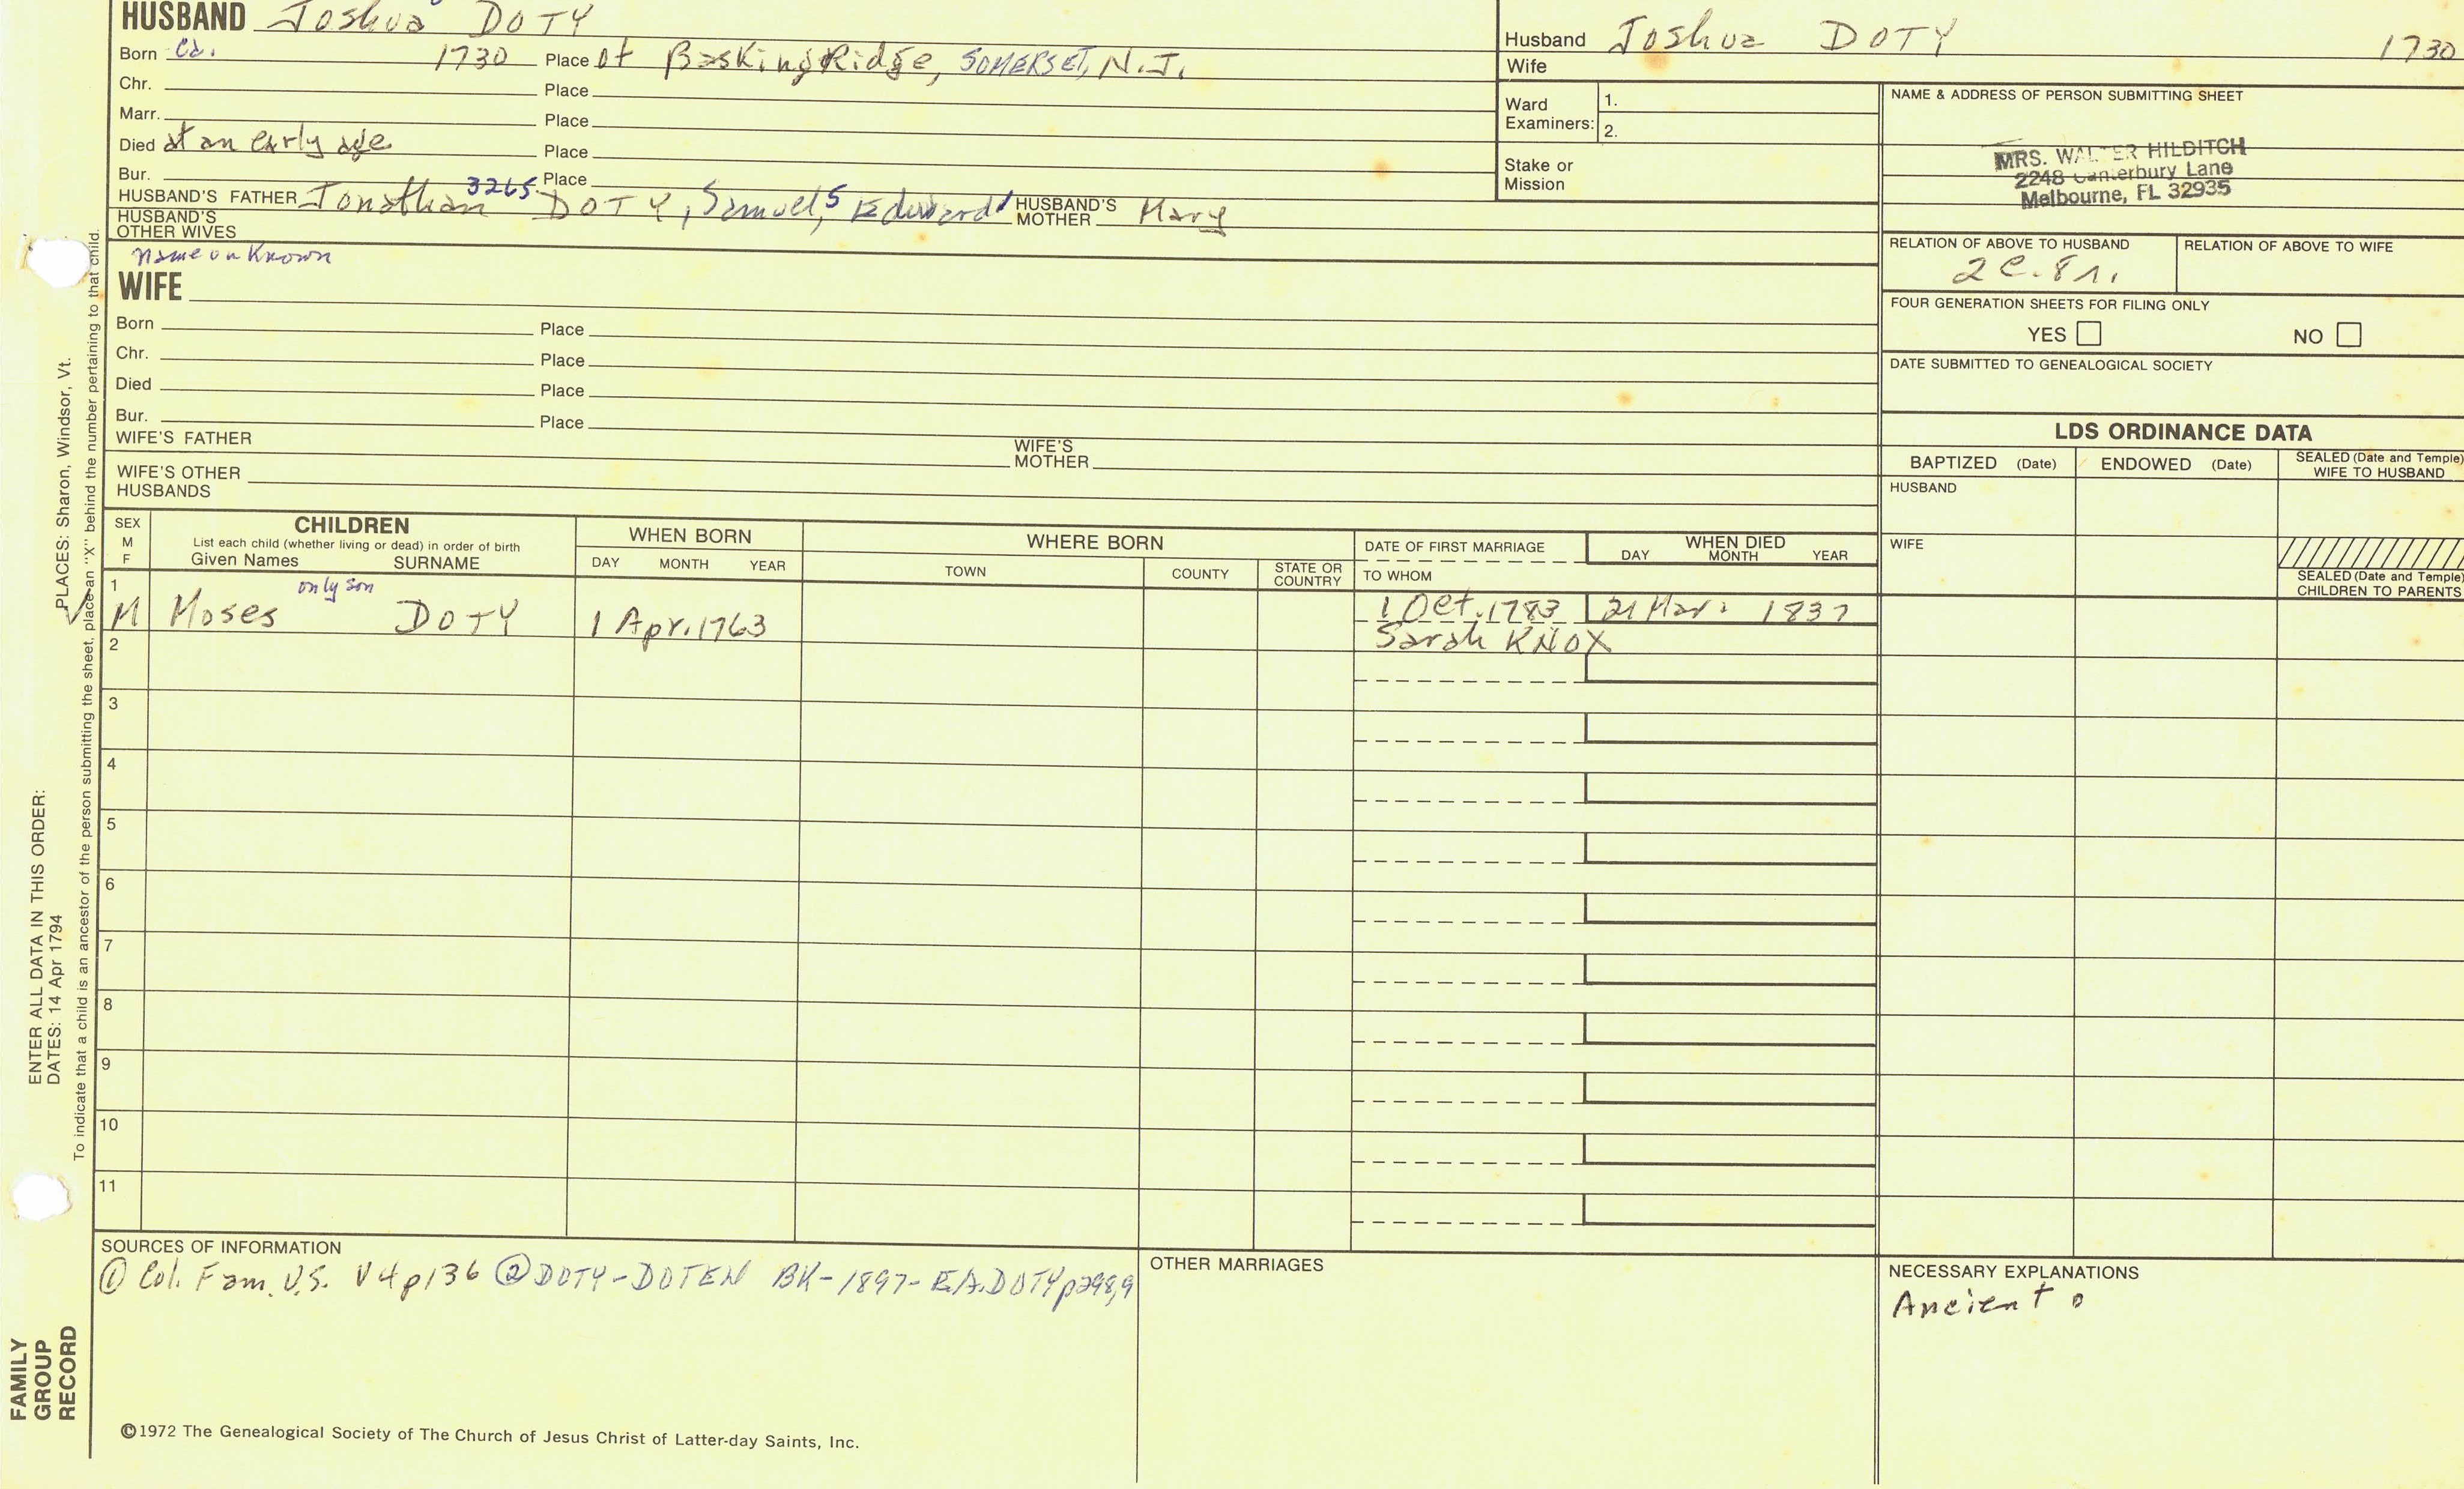 HUSBAND Joshua DOTY
Born Ca. 1730 Place of Basking Ridge, SOMERSET, N.J.
Chr. Place
Marr. Place
Died at an early age Place
Bur. Place
HUSBAND'S FATHER Jonathan 3265 DOTY, Samuel,5 Edward1 HUSBAND'S MOTHER Mary
HUSBAND'S OTHER WIVES
name unknown
WIFE
Born Place
Chr. Place
Died Place
Bur. Place
WIFE'S FATHER WIFE'S MOTHER
WIFE'S OTHER HUSBANDS
Husband Joshua DOTY 1730
Wife
Ward Examiners: 1.
2.
Stake or Mission
NAME & ADDRESS OF PERSON SUBMITTING SHEET
MRS. WALTER HILDITCH
2248 Canterbury Lane
Melbourne, FL 32935
RELATION OF ABOVE TO HUSBAND RELATION OF ABOVE TO WIFE
2c.8r.
FOUR GENERATION SHEETS FOR FILING ONLY
YES NO
DATE SUBMITTED TO GENEALOGICAL SOCIETY
LDS ORDINANCE DATA
BAPTIZED (Date) ENDOWED (Date) SEALED (Date and Temple) WIFE TO HUSBAND
HUSBAND
WIFE
SEALED (Date and Temple) CHILDREN TO PARENTS
SEX M F
CHILDREN
List each child (whether living or dead) in order of birth
Given Names SURNAME
WHEN BORN
DAY MONTH YEAR
WHERE BORN
TOWN COUNTY STATE OR COUNTRY
DATE OF FIRST MARRIAGE
TO WHOM
WHEN DIED
DAY MONTH YEAR
1 only son
M Moses DOTY 1 Apr. 1763 1 Oct. 1783 21 Mar. 1837
Sarah KNOX
2
3
4
5
6
7
8
9
10
11
SOURCES OF INFORMATION
① Col. Fam. U.S. V4 p136 ② DOTY-DOTEN BK-1897- E.A.DOTY p298,9
OTHER MARRIAGES
NECESSARY EXPLANATIONS
Ancient
©1972 The Genealogical Society of The Church of Jesus Christ of Latter-day Saints, Inc.
FAMILY GROUP RECORD
ENTER ALL DATA IN THIS ORDER:
DATES: 14 Apr 1794
PLACES: Sharon, Windsor, Vt.
To indicate that a child is an ancestor of the person submitting the sheet, place an "X" behind the number pertaining to that child.